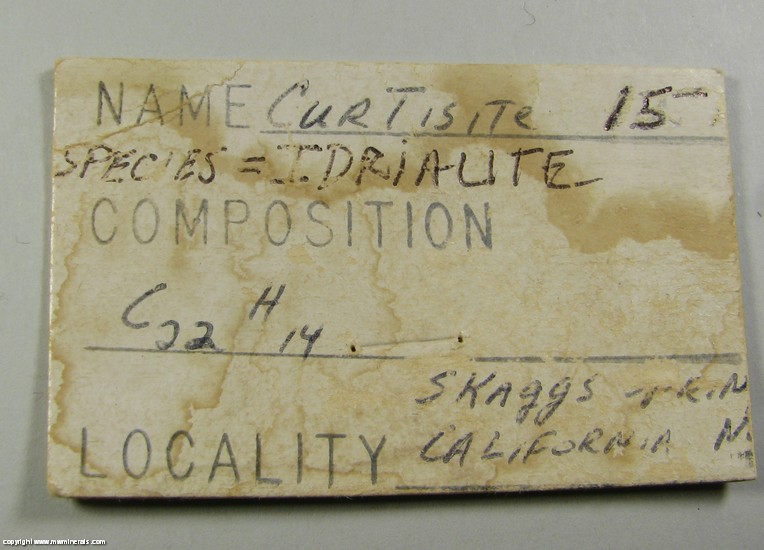 NAME CURTISITE 15-
SPECIES = IDRIALITE
COMPOSITION
C22 H14
SKAGGS
LOCALITY CALIFORNIA N.
copyright www.mwminerals.com